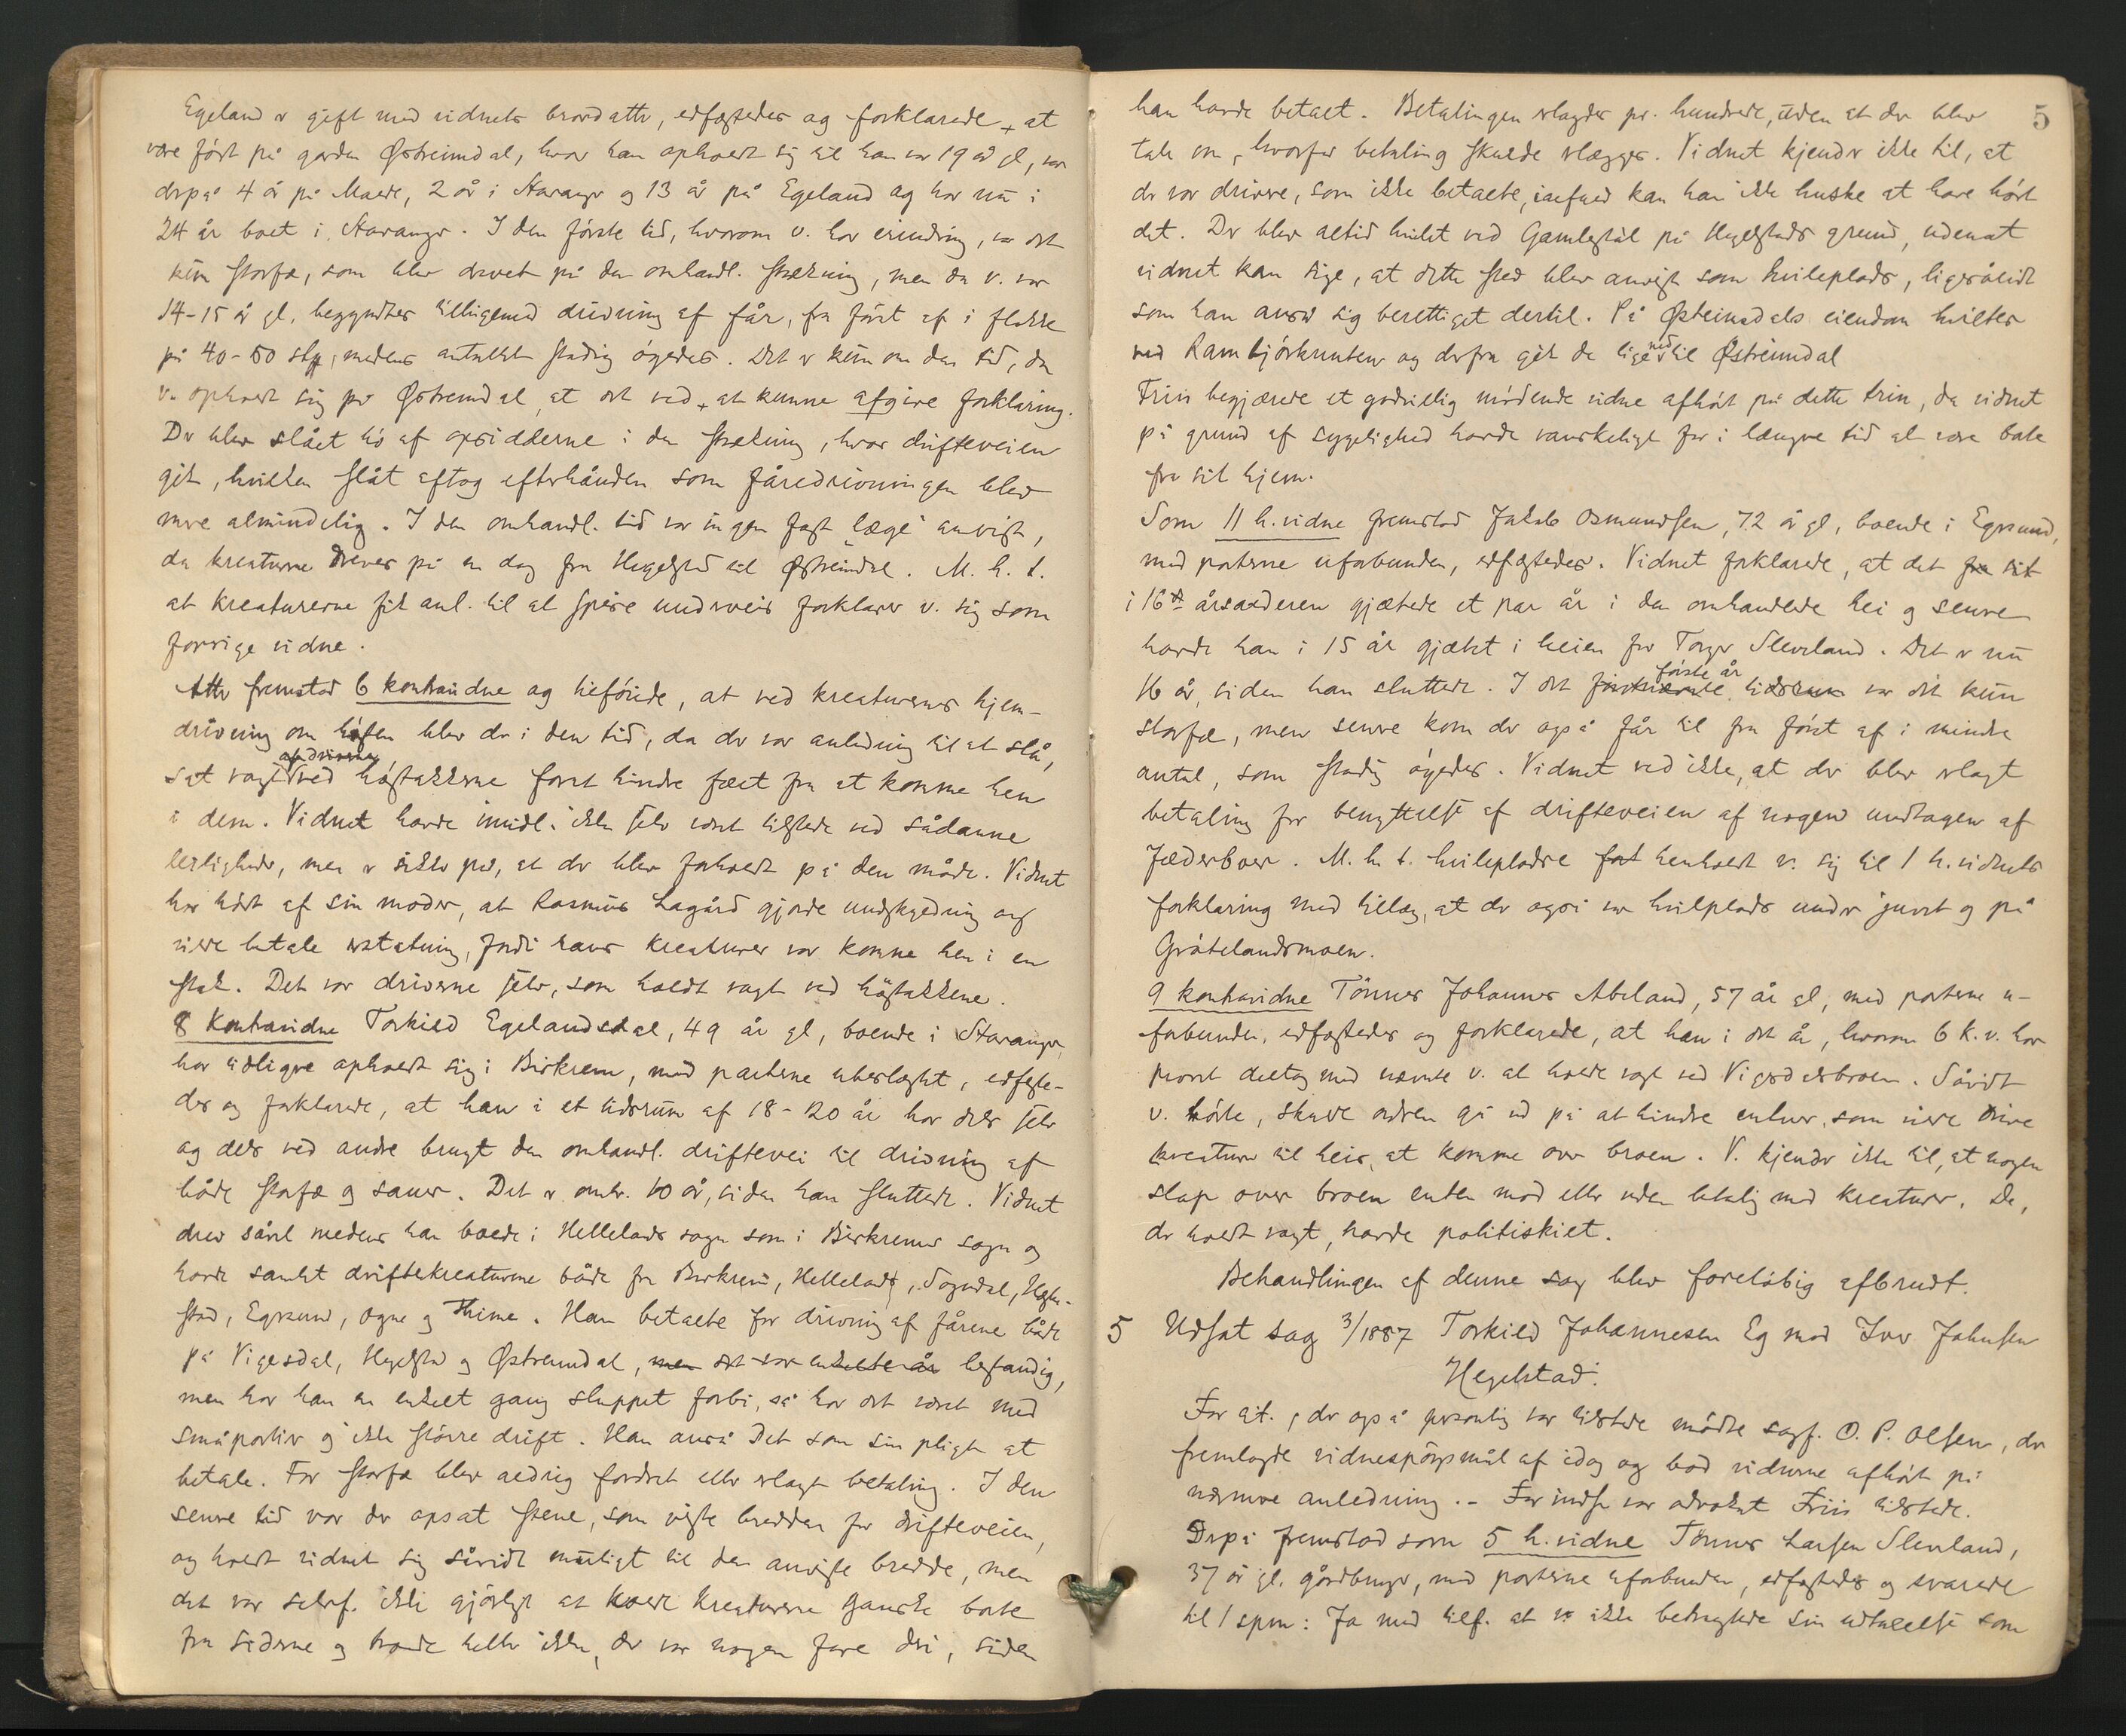 Egeland er gift med vidnets brordatter, edfæstedes og forklarede, at
være født på garden Østreimdal, hvor han opholdt sig til han var 19 år gl, var
derpå 4 år på Maele, 2 år i Stavanger og 13 år på Egeland og har nu i
24 år boet i Stavanger. I den første tid, hvorom v. har erindring, var det
kun storfæ, som blev drevet på den omhandl. strækning, men da v. var
14-15 år gl. begyndtes tilligemed drivning af får, fra først af i flokke
på 40-50 stk, medens antallet stadig øgedes. Det er kun om den tid, da
v. opholdt sig på Østreimdal, at det ved at kunne afgive forklaring.
Der blev slået hø af opsidderne i den strækning, hvor drifteveien
gik, hvilken slåt aftog efterhånden som fåredrivningen blev
mere almindelig. I den omhandl. tid var ingen fast læge anvist,
da kreaturene dreves på en dag fra Hegelstad til Østreimdal. M. h. t.
at kreaturerne fik anl. til at spise underveis forklarer v. sig som
forrige vidne.
Atter fremstod 6 kontravidne og tilføiede, at ved kreaturernes hjem-
drivning om høsten blev der i den tid, da der var anledning til at slå,
af driverne
sat vagt ved høstakkerne forat hindre fæet fra at komme hen
i dem. Vidnet havde imidl. ikke selv været tilstede ved sådanne
leiligheder, men er sikker på, at der blev forholdt på den måde. Vidnet
har hørt af sin moder, at Rasmus Lagård gjorde undskyldning og
vilde betale erstatning, fordi hans kreaturer var komne hen i en
stak. Det var driverne selv, som holdt vagt ved høstakkene.
8 Kontravidne Torkild Egelandsdal, 49 år gl, boende i Stavanger,
har tidligere opholdt sig i Birkrem, med parterne ubeslægtet, edfæste-
des og forklarede, at han i et tidsrum af 18-20 år har dels selv
og dels ved andre brugt den omhandl. driftevei til drivning af
både storfæ og sauer. Det er omtr. 10 år, siden han sluttede. Vidnet
drev såvel medens han boede i Hellelands sogn som i Birkrems sogn og
havde samlet driftekreaturene både fra Birkrem, Helleland, Sogndal, Hegle-
stad, Egersund, Ogne og Thime. Han betalte for drivning af fårene både
på Vigesdal, Hegelstad og Østreimdal, men det var enkelte år bestandig,
men har han en enkelt gang sluppet forbi, så har det været med
småpartier og ikke større drift. Han anså det som sin pligt at
betale. For storfæ blev aldrig fordret eller erlagt betaling. I den
senere tid var der opsat stene, som viste bredden for drifteveien,
og holdt vidnet sig såvidt muligt til den anviste bredde, men
det var selvf. ikke gjørligt at holde kreaturerne ganske borte
fra siderne og troede heller ikke, der var nogen fare deri, siden
5
han havde betalt. Betalingen erlagdes pr. hundrede, uden at der blev
tale om, hvorfor betaling skulde erlægges. Vidnet kjender ikke til, at
der var drivere, som ikke betalte, ialfald kan han ikke huske at have hørt
det. Der blev altid hvilt ved Gamlestøl på Hegelstads grund, udenat
vidnet kan sige, at dette sted blev anvist som hvileplads, ligesålidt
som han anså sig berettiget dertil. På Østreimdals eiendom hviltes
ved Rambjørknuten og derfra gik de lige ned til Østreimdal
Friis begjærede et godvillig mødende vidne afhørt på dette trin, da vidnet
på grund af sygelighed havde vanskeligt for i længere tid at være borte
fra sit hjem.
Som 11 h. vidne fremstod Jakob Osmundsen, 72 år gl, boende i Egersund,
med parterne uforbunden, edfæstedes. Vidnet forklarede, at det fra sit
i 16de årsalderen gjætede et par år i den omhandlede hei og senere
havde han i 15 år gjætet i heien for Torger Sleveland. Det er nu
første år
16 år, siden han sluttede. I det førstnævnte tidsrum var det kun
storfæ, men senere kom der også får til fra først af i mindre
antal, som stadig øgedes. Vidnet ved ikke, at der blev erlagt
betaling for benyttelse af drifteveien af nogen undtagen af
Jæderboer. M. h. t. hvilepladse henholdt v. sig til 1 h. vidnets
forklaring med tillæg, at der også var hvilplads under juvet og på
Gråtelandsmoen.
9 kontravidne Tönnes Johannes Abeland, 57 år gl, med parterne u-
forbunden, edfæstedes og forklarede, at han i det år, hvorom 6 k. v. har
provet deltog med nævnte v. at holde vagt ved Vigesdalsbroen. Såvidt
v. hørte, skulde ordren gå ud på at hindre enhver, som vilde drive
kreaturer til heis, at komme over broen. V. kjender ikke til, at nogen
slap over broen enten mod eller uden betaling med kreaturer. De,
der holdt vagt, havde politiskilt.
Behandlingen af denne sag blev foreløbig afbrudt.
5 Udsat sag 3/1887 Torkild Johannesen Eg mod Iver Johnsen
Hegelstad.
For cit., der også personlig var tilstede mødte sagf. O. P. Olsen, der
fremlagde vidnespørgsmål af idag og bad vidnerne afhørt på
nærmere anledning. - For indst. var advokat Friis tilstede.
Derpå fremstod som 5 h. vidne Tönnes Larsen Slevland,
37 år gl. gårdbruger, med parterne uforbunden, edfæstedes og svarede
til 1 spm: Ja med tilf. at v. ikke betragtede sin udtalelse som